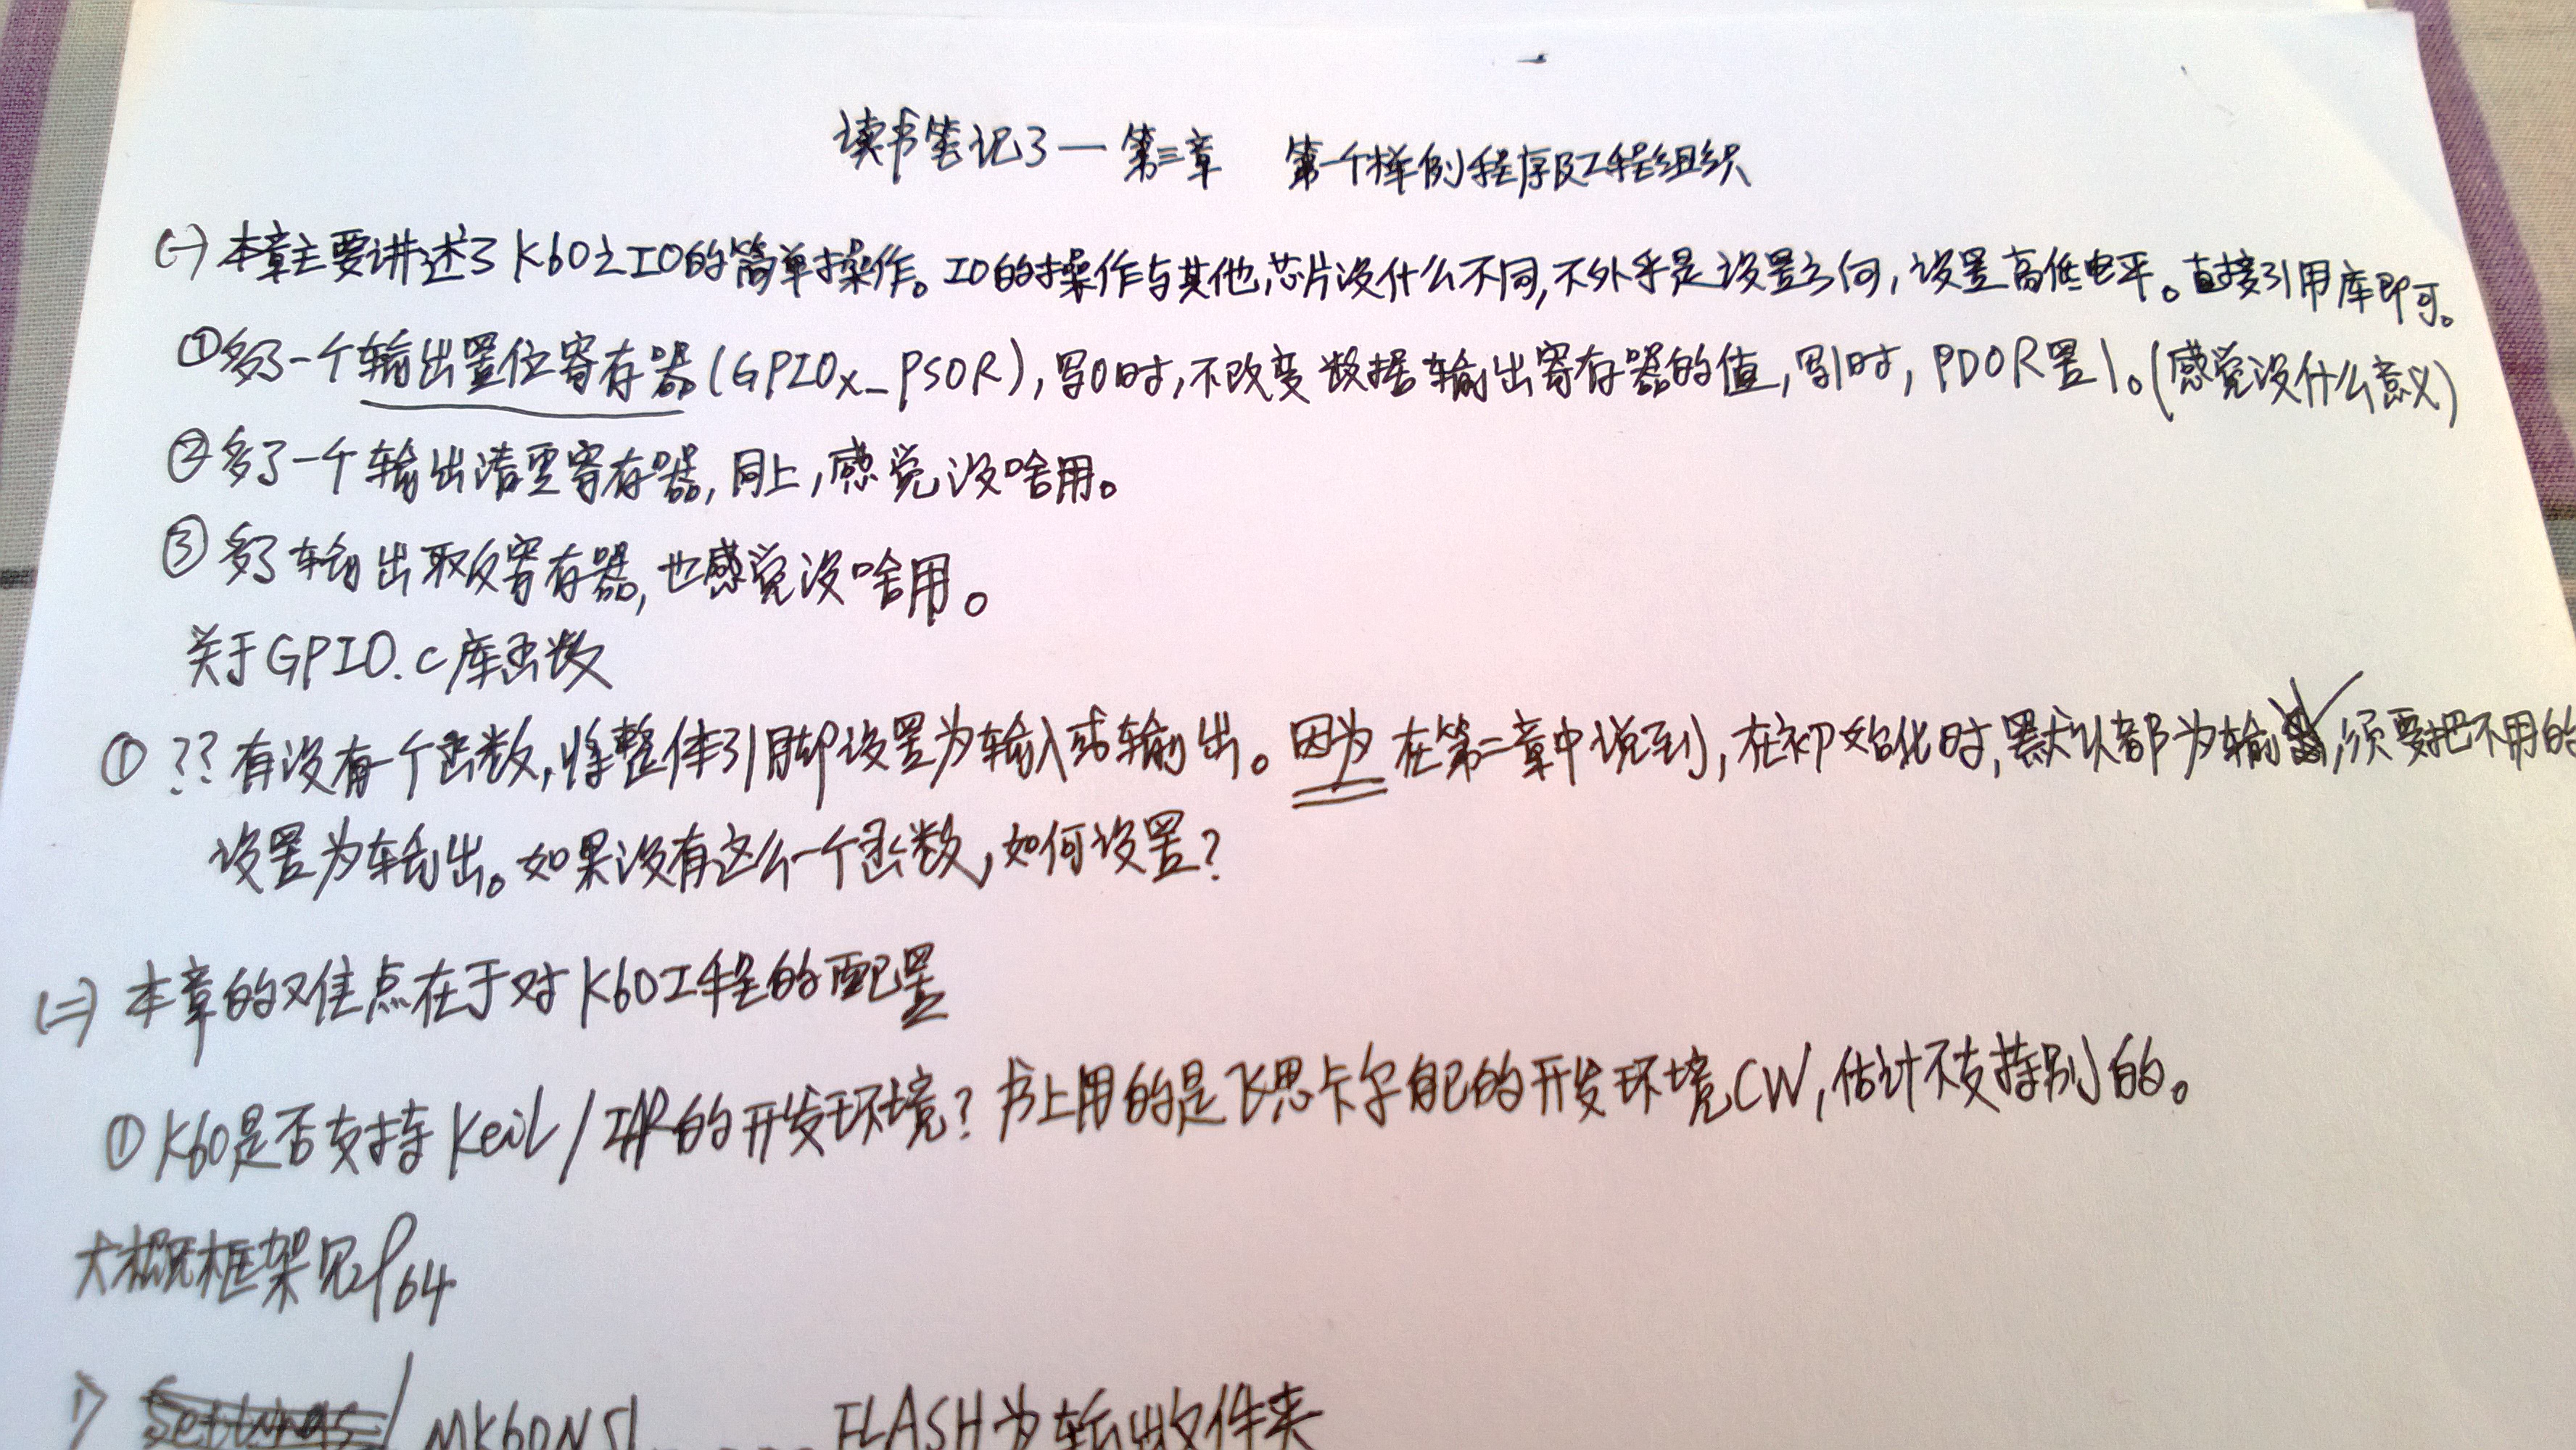 读书笔记3—第三章 第一个样例程序及工程组织
(一)本章主要讲述了K60之IO的简单操作。IO的操作与其他芯片没什么不同,不外乎是设置方向,设置高低电平。直接引用库即可。
①多了一个输出置位寄存器(GPIOx_PSOR),写0时,不改变数据输出寄存器的值,写1时,PDOR置1。(感觉没什么意义)
②多了一个输出清零寄存器,同上,感觉没啥用。
③多了输出取反寄存器,也感觉没啥用。
关于GPIO.c库函数
①??有没有一个函数,将整体引脚设置为输入或输出。因为在第二章中说到,在初始化时,默认都为输,须要把不用的
设置为输出。如果没有这么一个函数,如何设置?
(二)本章的难点在于对K60工程的配置
①K60是否支持Keil/IAR的开发环境?书上用的是飞思卡尔自己的开发环境CW,估计不支持别的。
大概框架见P64
1) MK60N51......FLASH为输出文件夹